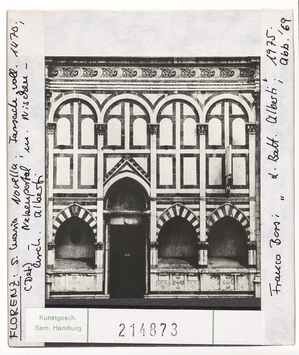 FLORENZ: S. Maria Novella; Fassade voll. 1470;
(Det) Nebenportal m. Nischen-
durch Alberti
Franco Borsi: "L. Batt. Alberti"; 1975.
Abb. 69
Kunstgesch.
Sem. Hamburg
214873